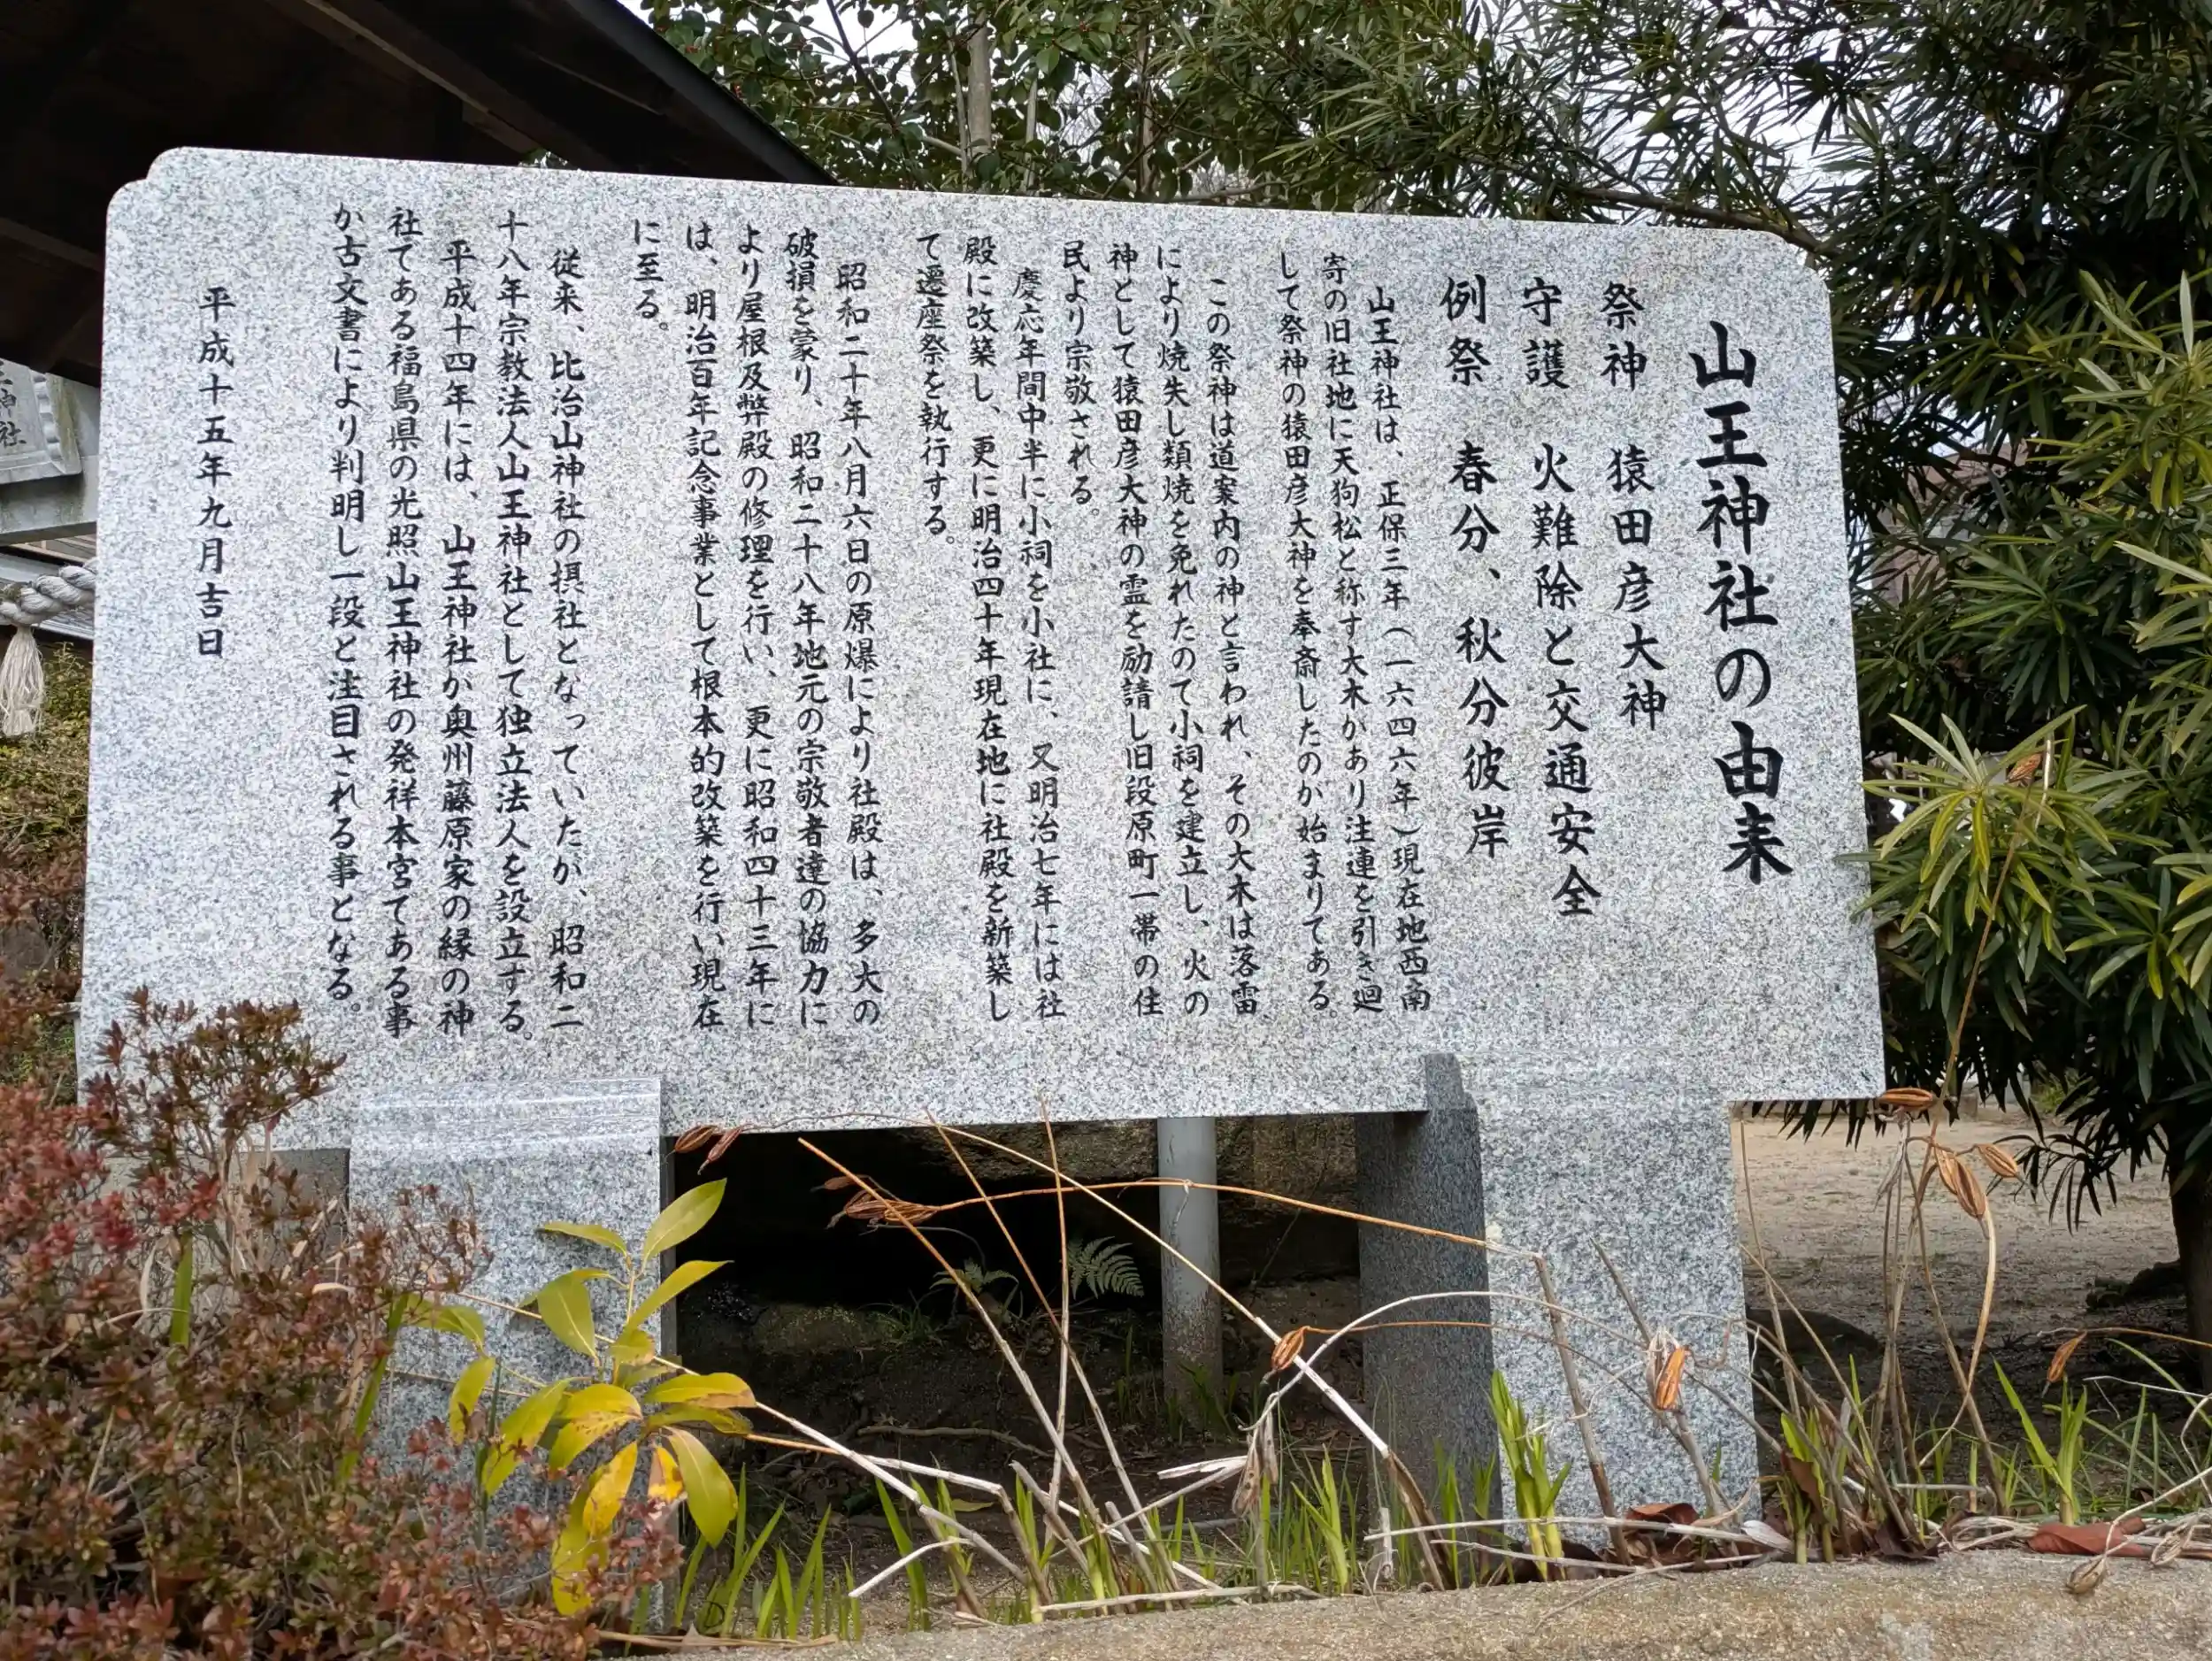 山王神社の由来
祭神 猿田彦大神
守護 火難除と交通安全
例祭 春分、秋分彼岸
山王神社は、正保三年（一六四六年）現在地西南
寄の旧社地に天狗松と称す大木があり注連を引き廻
して祭神の猿田彦大神を奉斎したのが始まりである。
この祭神は道案内の神と言われ、その大木は落雷
により焼失し類焼を免れたので小祠を建立し、火の
神として猿田彦大神の霊を勧請し旧段原町一帯の住
民より崇敬される。
慶応年間中半に小祠を小社に、又明治七年には社
殿に改築し、更に明治四十年現在地に社殿を新築し
て遷座祭を執行する。
昭和二十年八月六日の原爆により社殿は、多大の
破損を蒙り、昭和二十八年地元の崇敬者達の協力に
より屋根及弊殿の修理を行い、更に昭和四十三年に
は、明治百年記念事業として根本的改築を行い現在
に至る。
従来、比治山神社の摂社となっていたが、昭和二
十八年宗教法人山王神社として独立法人を設立する。
平成十四年には、山王神社が奥州藤原家の縁の神
社である福島県の光照山王神社の発祥本宮である事
が古文書により判明し一段と注目される事となる。
平成十五年九月吉日
神社